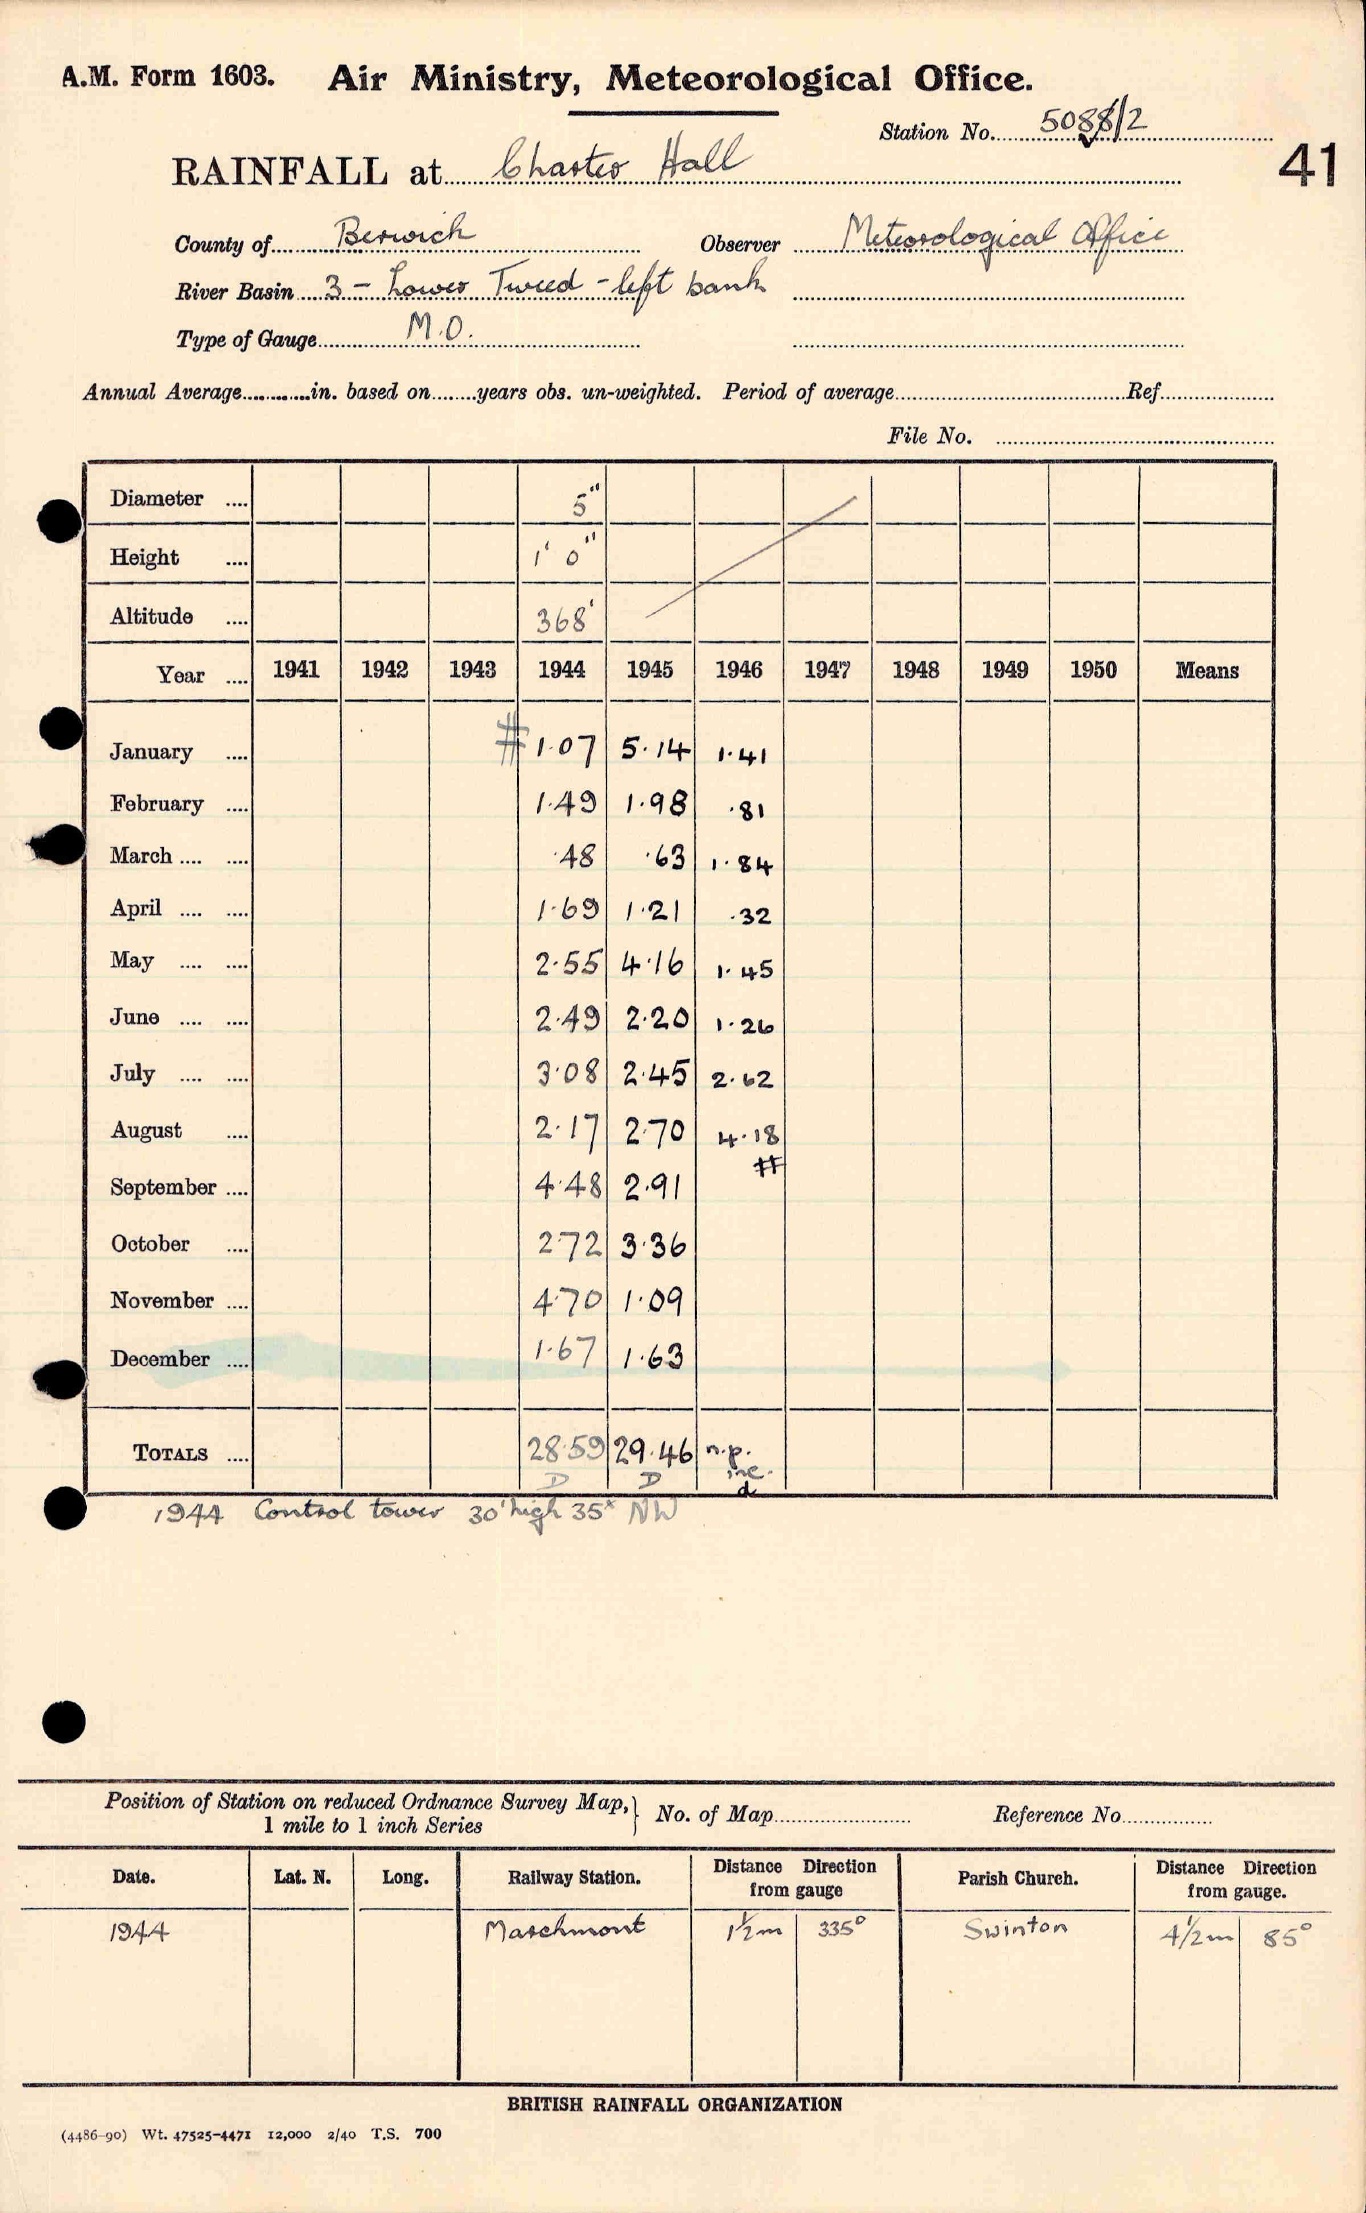 A.M. Form 1603. Air Ministry, Meteorological Office.
Station No. 5088/2
41
RAINFALL at Charter Hall
County of Berwick Observer Meteorological Office
River Basin 3 - Lower Tweed - left bank
Type of Gauge M.O.
Annual Average in. based on years obs. un-weighted. Period of average Ref.
File No.
Diameter 5"
Height 1' 0"
Altitude 368'
Year 1941 1942 1943 1944 1945 1946 1947 1948 1949 1950 Means
January # 1.07 5.14 1.41
February 1.49 1.98 .81
March .48 .63 1.84
April 1.69 1.21 .32
May 2.55 4.16 1.45
June 2.49 2.20 1.26
July 3.08 2.45 2.62
August 2.17 2.70 4.18
#
September 4.48 2.91
October 2.72 3.36
November 4.70 1.09
December 1.67 1.63
TOTALS 28.59 29.46 n.p.
D D inc.
d
1944 Control tower 30' high 35x NW
Position of Station on reduced Ordnance Survey Map, } No. of Map Reference No.
1 mile to 1 inch Series
Date. Lat. N. Long. Railway Station. Distance Direction from gauge Parish Church. Distance Direction from gauge.
1944 Marchmont 1½m 335° Swinton 4½m 85°
BRITISH RAINFALL ORGANIZATION
(4486-90) Wt. 47525-4471 12,000 2/40 T.S. 700